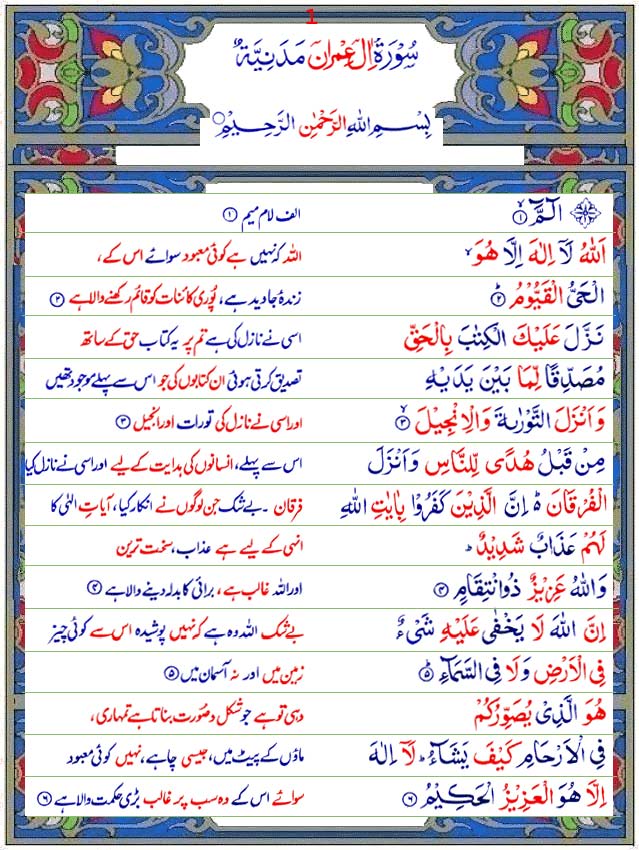 1
سُوْرَةُ اٰلِ عِمْرٰنَ مَدَنِيَّةٌ
بِسْمِ اللهِ الرَّحْمٰنِ الرَّحِيْمِ
الٓمّٓ ۙ ① الف لام میم ①
اَللهُ لَآ اِلٰهَ اِلَّا هُوَ ۙ اللہ کہ نہیں ہے کوئی معبود سوائے اس کے،
الْحَىُّ الْقَيُّوْمُ ؕ ② زندۂ جاوید ہے، پُوری کائنات کو قائم رکھنے والا ہے ②
نَزَّلَ عَلَيْكَ الْكِتٰبَ بِالْحَقِّ اسی نے نازل کی ہے تم پر یہ کتاب حق کے ساتھ
مُصَدِّقًا لِّمَا بَيْنَ يَدَيْهِ تصدیق کرتی ہوئی ان کتابوں کی جو اس سے پہلے موجود تھیں
وَاَنْزَلَ التَّوْرٰىةَ وَالْاِنْجِيْلَ ۙ ③ اور اسی نے نازل کی تورات اور انجیل ③
مِنْ قَبْلُ هُدًى لِّلنَّاسِ وَاَنْزَلَ اس سے پہلے، انسانوں کی ہدایت کے لیے اور اسی نے نازل کیا
الْفُرْقَانَ ؕ اِنَّ الَّذِيْنَ كَفَرُوْا بِاٰيٰتِ اللهِ فرقان ۔ بے شک جن لوگوں نے انکار کیا، آیاتِ الٰہی کا
لَهُمْ عَذَابٌ شَدِيْدٌ ؕ انہی کے لیے ہے عذاب، سخت ترین
وَاللهُ عَزِيْزٌ ذُوانْتِقَامٍ ④ اور اللہ غالب ہے، برائی کا بدلہ دینے والا ہے ④
اِنَّ اللهَ لَا يَخْفٰى عَلَيْهِ شَىْءٌ بے شک اللہ وہ ہے کہ نہیں پوشیدہ اس سے کوئی چیز
فِى الْاَرْضِ وَلَا فِى السَّمَآءِ ؕ ⑤ زمین میں اور نہ آسمان میں ⑤
هُوَ الَّذِىْ يُصَوِّرُكُمْ وہی تو ہے جو شکل و صُورت بناتا ہے تمہاری،
فِى الْاَرْحَامِ كَيْفَ يَشَآءُ ؕ لَآ اِلٰهَ ماؤں کے پیٹ میں، جیسی چاہے، نہیں کوئی معبود
اِلَّا هُوَ الْعَزِيْزُ الْحَكِيْمُ ⑥ سوائے اس کے وہ سب پر غالب بڑی حکمت والا ہے ⑥